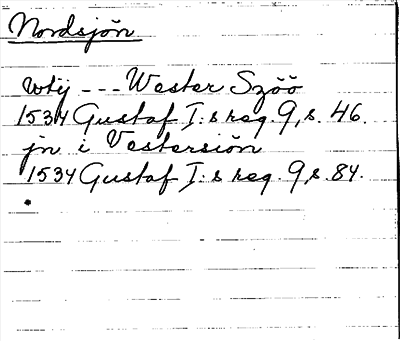 Nordsjön
wtij --- Wester Szöö
1534 Gustaf I:s reg. 9, s. 46.
jn i Vestersiön
1534 Gustaf I:s reg. 9, s. 84.